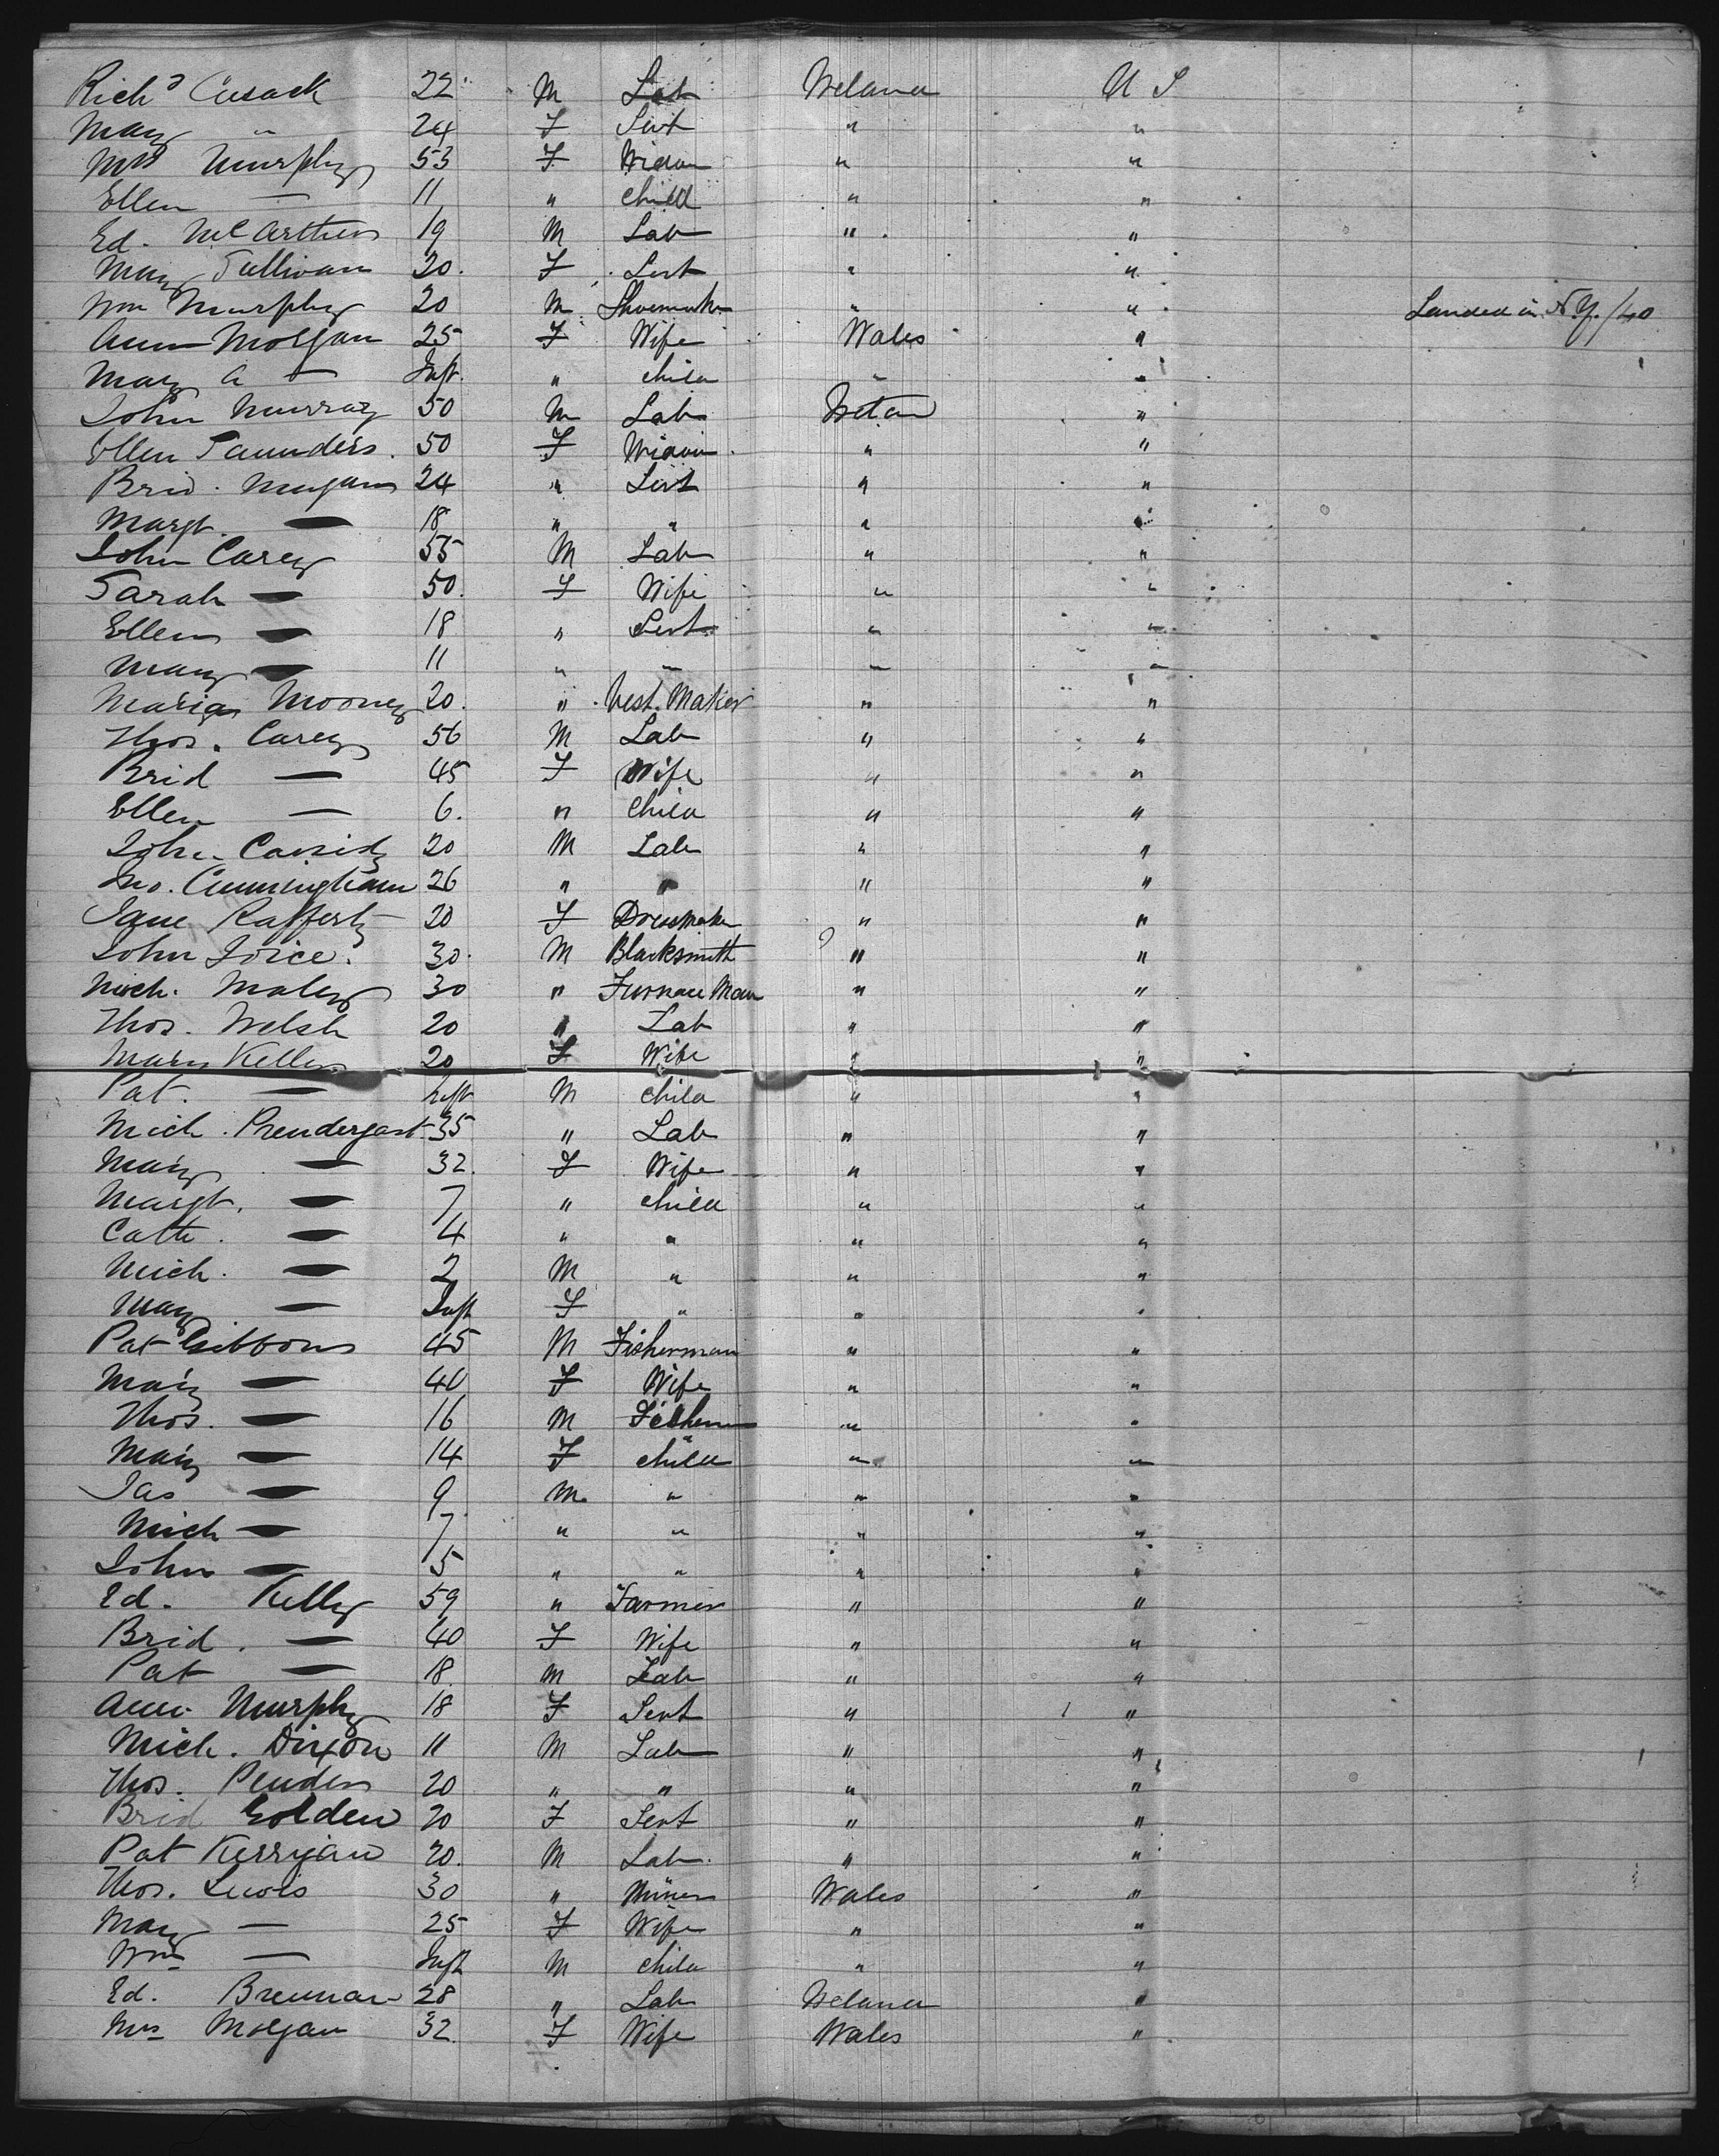 Richd Cusack 22 M Lab Ireland U S
Mary " 24 F Sert " "
Mrs Murphy 53 F Widow " "
Ellen — 11 " Child " "
Ed. McCarthur 19 M Lab " "
Mary Sullivan 20. F Sert " "
Wm Murphy 20 M Shoemaker " " Landed in N.Y. /40
Ann Morgan 25 F Wife Wales "
Mary A — Inft. " child " "
John Murray 50 M Lab Irelan "
Ellen Saunders. 50 F Widow " "
Brid. 24 " Sert " "
Margt. — 18 " " " "
John Carey 55 M Lab " "
Sarah — 50. F Wife " "
Ellen — 18 " Sert " "
Mary — 11 " " " "
Maria Mooney 20. " Vest Maker " "
Thos. Carey 56 M Lab " "
Brid — 45 F Wife " "
Ellen — 6. " Child " "
John Cassidy 20 M Lab " "
Jno. Cunningham 26 " " " "
Jane Rafferty 20 F Dressmaker " "
John Joice. 30. M Blacksmith " "
Mich. Maley 30 " Furnace Man " "
Thos. Welsh 20 " Lab " "
Mary Kelley 20 F Wife " "
Pat. — Inft M child " "
Mich. Prendergast 35 " Lab " "
Mary — 32. F Wife " "
Margt. — 7 " child " "
Cath. — 4 " " " "
Mich. — 2 M " " "
Mary — Inft F " " "
Pat Gibbons 45 M Fisherman " "
Mary — 40 F Wife " "
Thos. — 16 M Fisherm " "
Mary — 14 F child " "
Jas — 9 M. " " "
Mich — 7 " " " "
John — 5 " " " "
Ed. Kelly 59 " Farmer " "
Brid. — 40 F Wife " "
Pat — 18. M Lab " "
Ann Murphy 18 F Sert " "
Mich. Dixon 11 M Lab " "
Thos. Penders 20 " " " "
Brid Golden 20 F Sert " "
Pat Kerrigan 20. M Lab. " "
Thos. Lewis 30 " Miner Wales "
Mary — 25 F Wife " "
Wm — Inft M child " "
Ed. Brennan 28 " Lab Ireland "
Mrs Morgan 32. F Wife Wales "